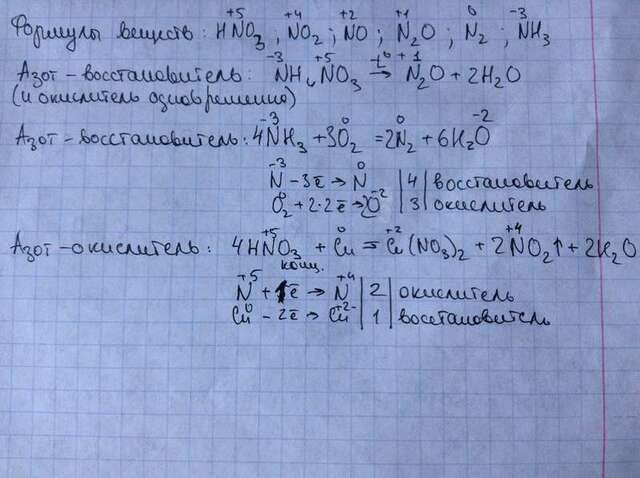 Формулы веществ: HN⁺⁵O₃, N⁺⁴O₂; N⁺²O; N⁺¹₂O; N⁰₂; N⁻³H₃
Азот-восстановитель: N⁻³H₄N⁺⁵O₃ →t° N⁺¹₂O + 2H₂O
(и окислитель одновременно)
Азот-восстановитель: 4N⁻³H₃ + 3O⁰₂ = 2N⁰₂ + 6H₂O⁻²
N⁻³ - 3ē → N⁰ | 4 | восстановитель
O⁰₂ + 2·2ē → 2O⁻² | 3 | окислитель
Азот-окислитель: 4HN⁺⁵O₃ + Cu⁰ = Cu⁺²(NO₃)₂ + 2N⁺⁴O₂↑ + 2H₂O
конц.
N⁺⁵ + 1ē → N⁺⁴ | 2 | окислитель
Cu⁰ - 2ē → Cu⁺² | 1 | восстановитель